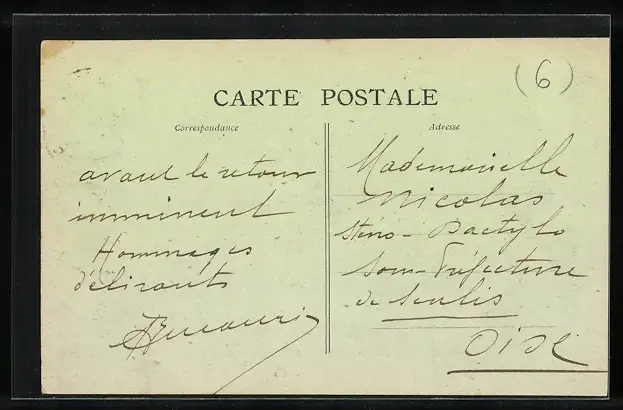 (6)
CARTE POSTALE
Correspondance
Adresse
avant le retour
imminent
Hommages
délirants
Mademoiselle
Nicolas
Sténo-Dactylo
Sous-Préfecture
de Senlis
Oise